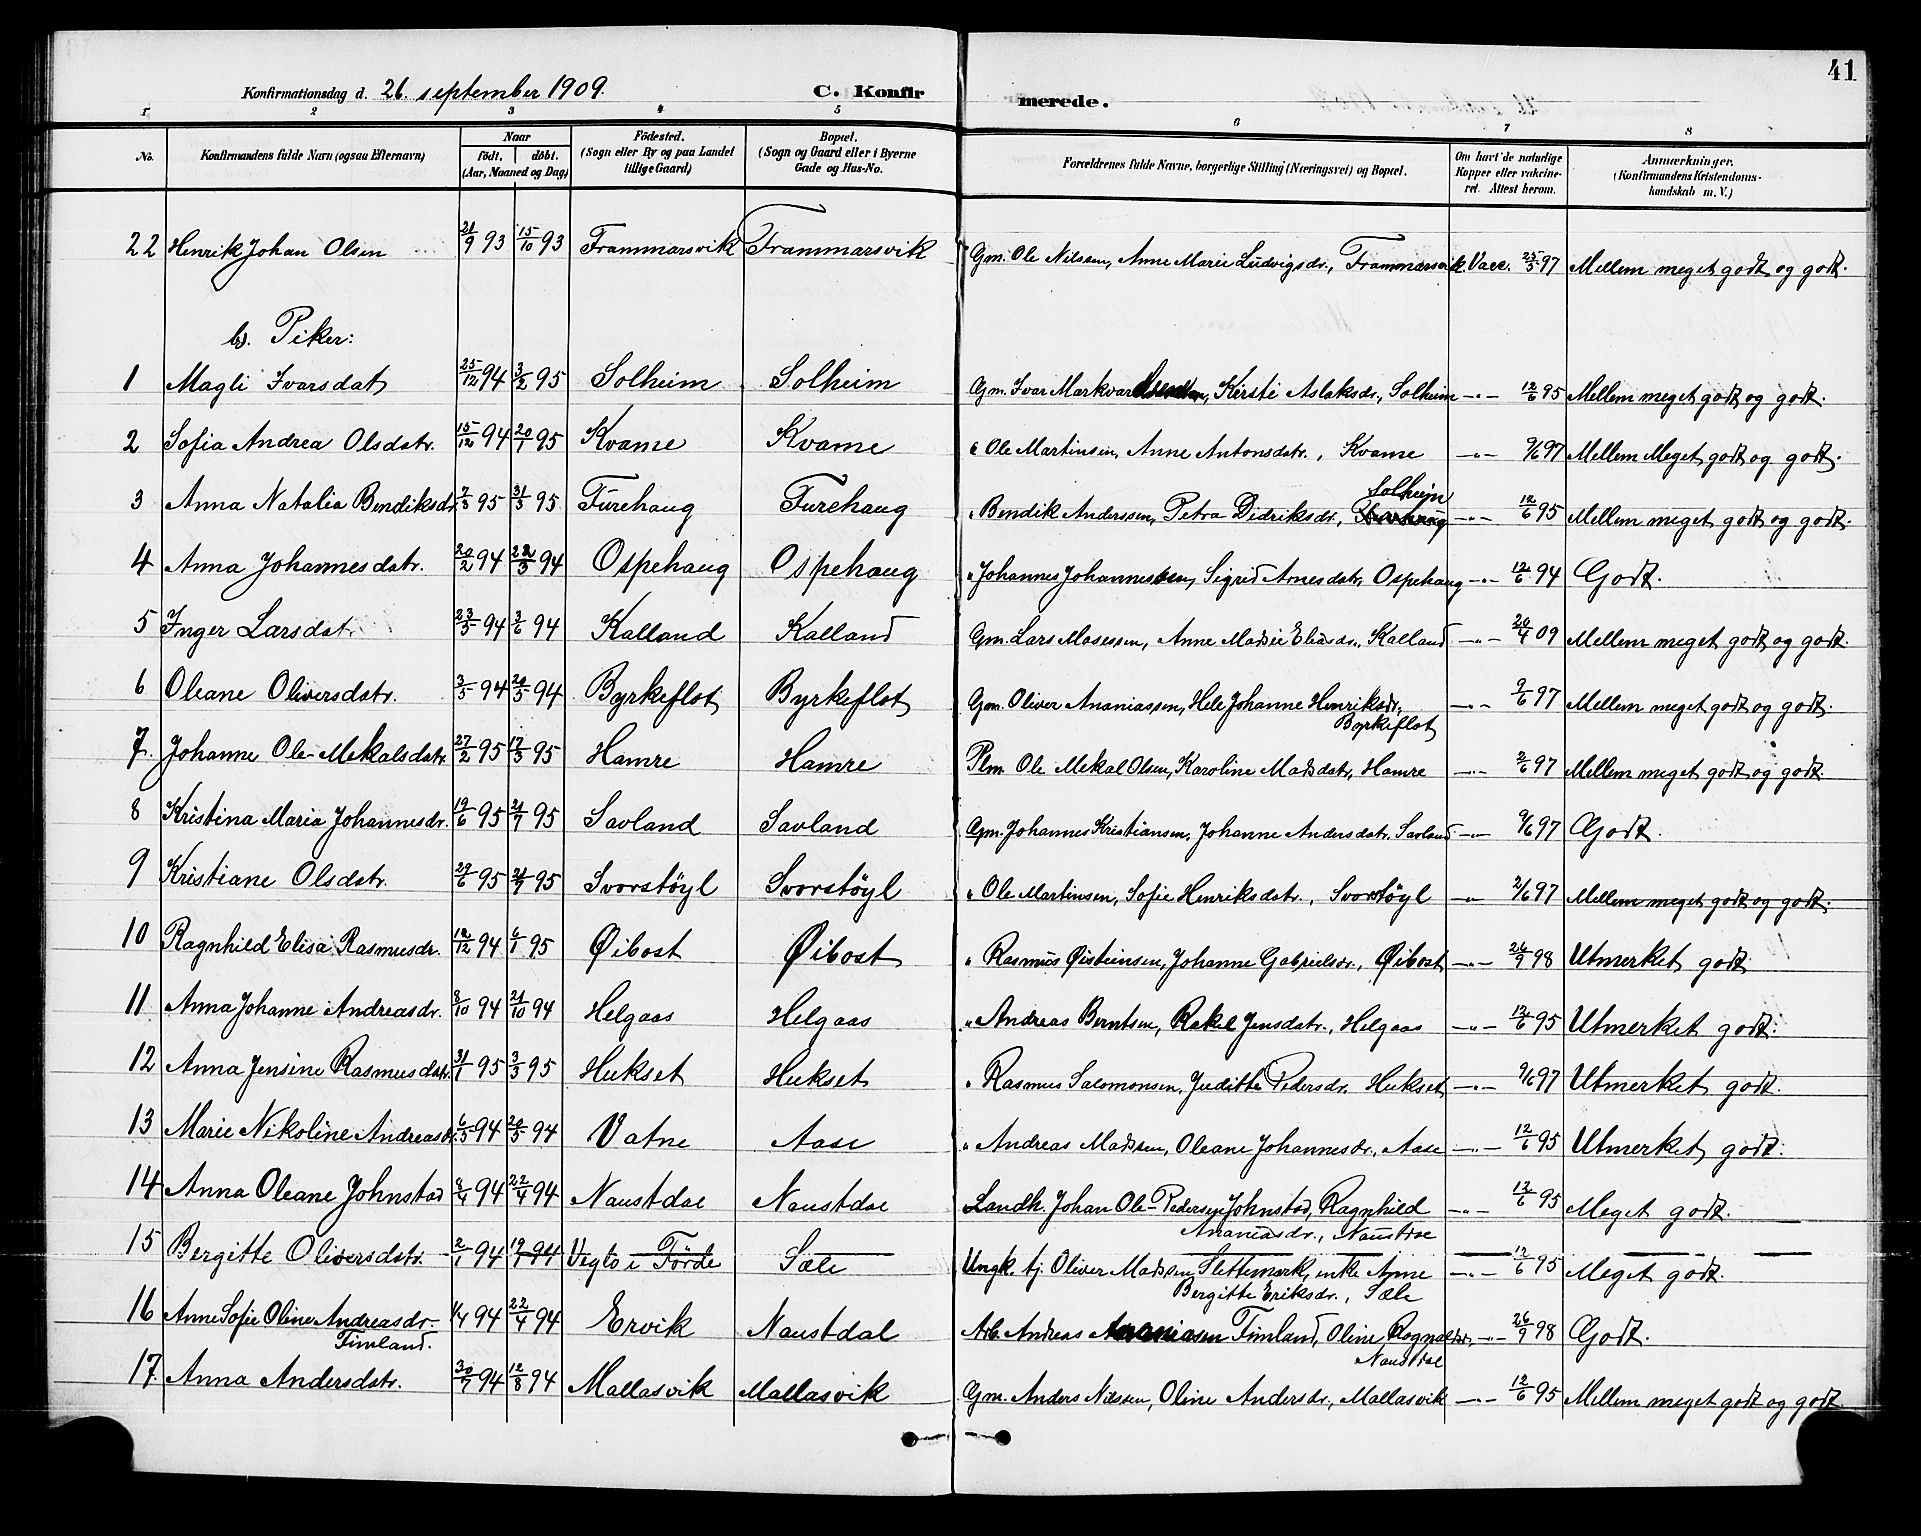 41
Konfirmationsdag d. 26. september 1909. C. Konfirmerede.
1 2 3 4 5 6 7 8
No. Konfirmandens fulde Navn (ogsaa Efternavn) Naar födt. döbt. (Aar, Maaned og Dag) Födested. (Sogn eller By og paa Landet tillige Gaard) Bopæl. (Sogn og Gaard eller i Byerne Gade og Hus-No. Forældrenes fulde Navne, borgerlige Stilling (Næringsvei) og Bopæl. Om havt de naturlige Kopper eller vakcineret. Attest herom. Anmærkninger. (Konfirmandens Kristendomskundskab m. V.)
22 Henrik Johan Olsen 21/9 93 15/10 93 Frammarsvik Frammarsvik Gm. Ole Nilssen, Anne Marie Ludvigsdr., Frammarsvik Vacc. 25/5 97 Mellem meget godt og godt.
b). Piker:
1 Magli Ivarsdat 25/12 94 3/2 95 Solheim Solheim Gm. Ivar Markvardsen, Kirsti Aslaksdr., Solheim —"— 12/6 95 Mellem meget godt og godt.
2 Sofia Andrea Olsdatr. 15/12 94 20/1 95 Kvame Kvame " Ole Martinsen, Anne Antonsdatr., Kvame —"— 9/6 97 Mellem Meget godt og godt.
3 Anna Natalia Bendiksdr. 7/3 95 31/3 95 Furehaug Furehaug " Bendik Anderssen, Petra Didriksdr., Furehaug Solheim —"— 12/6 95 Mellem meget godt og godt.
4 Anna Johannesdatr. 20/2 94 22/3 94 Ospehaug Ospehaug " Johannes Johannessen, Sigrid Arnesdatr, Ospehaug —"— 12/6 94 Godt.
5 Inger Larsdat. 23/5 94 3/6 94 Kalland Kalland Gm. Lars Mosessen, Anne Madsie Eliasdr., Kalland —"— 20/4 09 Mellem meget godt og godt.
6 Oleane Oliversdatr. 3/5 94 20/5 94 Byrkeflot Byrkeflot Gm. Oliver Ananiassen, Hele Johanne Henriksdr., —"— 9/6 97 Mellem meget godt og godt.
Byrkeflot
7. Johanne Ole-Mekalsdatr. 27/2 95 17/3 95 Hamre Hamre Plm. Ole Mekal Olsen, Karoline Madsdatr, Hamre —"— 2/6 97 Mellem meget godt og godt.
8 Kristina Maria Johannesdr. 19/6 95 21/7 95 Savland Savland Gm. Johannes Kristiansen, Johanne Andersdatr. Savland —"— 9/6 97 Godt.
9 Kristiane Olsdatr. 29/6 95 21/7 95 Svorstöyl Svorstöyl " Ole Martinsen, Sofie Henriksdatr., Svorstöyl —"— 2/6 97 Mellem meget godt og godt.
10 Ragnhild Elisa Rasmusdr. 12/12 94 6/1 95 Øibost Øibost " Rasmus Øisteinsen, Johanne Gabrielsdr., Øibost —"— 26/9 98 Utmerket godt
11 Anna Johanne Andreasdr. 8/10 94 21/10 94 Helgaas Helgaas " Andreas Berntsen, Rakel Jensdatr., Helgaas —"— 12/6 95 Utmerket godt.
12 Anna Jensine Rasmusdatr. 31/1 95 3/3 95 Hukset Hukset " Rasmus Salomonsen, Juditte Pedersdr. Hukset —"— 9/6 97 Utmerket godt.
13 Marie Nikoline Andreasdr. 6/5 94 20/5 94 Vatne Aase " Andreas Madssen, Oleane Johannesdr., Aase —"— 12/6 95 Utmerket godt.
14 Anna Oleane Johnstad 8/4 94 22/4 94 Naustdal Naustdal Landh. Johan Ole-Pedersen Johnstad, Ragnhild —"— 12/6 95 Meget godt.
Ananiasdr., Naustdal
15 Bergitte Oliversdatr. 2/1 94 94 Veglo i Förde Sæle Ungk. tj. Oliver Madssen Slettemark, enke Anne —"— 12/6 95 Meget godt.
Bergitte Eriksdr., Sæle
16 Anne Sofie Oline Andreasdr- 1/4 94 22/4 94 Ervik Naustdal Arb. Andreas Ananiassen Timland, Oline Ragnaldsdr., —"— 26/9 98 Godt.
Timland. Naustdal
17. Anna Andersdatr. 30/7 94 12/8 94 Mallasvik Mallasvik Gm. Anders Nilssen, Oline Andersdr., Mallasvik —"— 12/6 95 Mellem meget godt og godt.